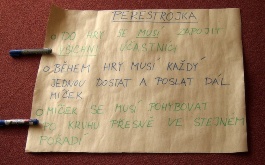 PEREStROJKA
DO HRY SE MUSÍ ZAPOJIT
VŠICHNI ÚČASTNÍCI
BĚHEM HRY MUSÍ KAŽDÝ
JEDNOU DOSTAT A POSLAT DÁL
MÍČEK
MÍČEK SE MUSÍ POHYBOVAT
PO KRUHU PŘESNĚ VE STEJNÉM
POŘADÍ